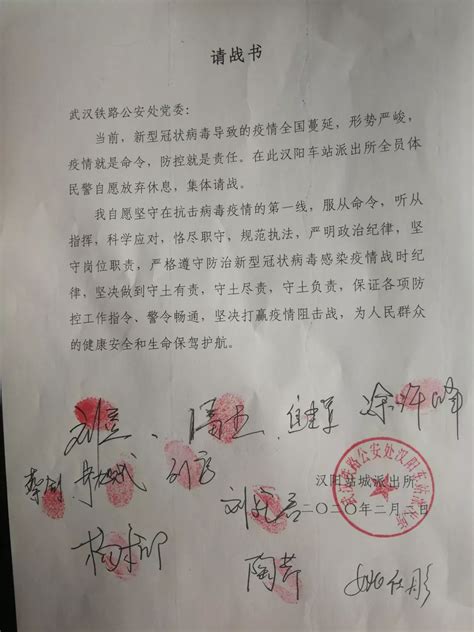 请战书
武汉铁路公安处党委:
当前，新型冠状病毒导致的疫情全国蔓延，形势严峻，
疫情就是命令，防控就是责任。在此汉阳车站派出所全员体
民警自愿放弃休息，集体请战。
我自愿坚守在抗击病毒疫情的第一线，服从命令，听从
指挥，科学应对，恪尽职守，规范执法，严明政治纪律，坚
守岗位职责，严格遵守防治新型冠状病毒感染疫情战时纪
律，坚决做到守土有责，守土尽责，守土负责，保证各项防
控工作指令、警令畅通，坚决打赢疫情阻击战，为人民群众
的健康安全和生命保驾护航。
汉阳站城派出所
二〇二〇年二月二日